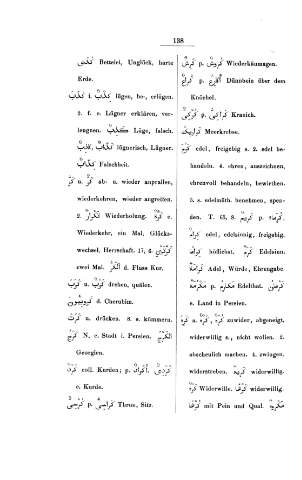 138
كُدْىٌ Bettelei, Unglück, harte
Erde.
كَذَبَ i. كِذْبٌ lügen, be-, erlügen.
2. f. e. Lügner erklären, ver-
leugnen. كِذْبٌ Lüge, falsch.
كَاذِبٌ, كَذَّابٌ lügnerisch, Lügner.
Falschheit.
كَرَّ u. كَرٌّ ab- u. wieder anprallen,
wiederkehren, wieder angreifen.
2. تَكْرَارٌ Wiederholung. كَرَّةٌ e.
Wiederkehr, ein Mal, Glücks-
wechsel, Herrschaft. 17, 6.
zwei Mal. d. Fluss Kur.
كَرَبَ u. كَرْبٌ drehen, quälen.
d. Cherubim.
كَرَثَ u. drücken. 8. s. kümmern.
N. e. Stadt i. Persien.
Georgien.
كُرْدٌ coll. Kurden; p. أَكْرَادٌ. كُرْدِيٌّ
e. Kurde.
كُرْسِيٌّ p. كَرَاسِيُّ Thron, Sitz.
كَرِشٌ p. كُرُوشٌ Wiederkäumagen.
كُرَاعٌ p. أَكْرُعٌ Dünnbein über dem
Knöchel.
كُرْكِيٌّ p. كَرَاكِيُّ Kranich.
Meerkrebse.
كَرُمَ edel, freigebig s. 2. edel be-
handeln. 4. ehren, auszeichnen,
ehrenvoll behandeln, bewirthen.
5. s. edelmüth. benehmen, spen-
den. T. 65, 8. كَرِيمٌ p. كُرَمَاءُ,
كِرَامٌ edel, edelsinnig, freigebig.
höflichst. Edelsinn.
كَرَامَةٌ Adel, Würde, Ehrengabe.
مَكْرُمَةٌ p. مَكَارِمُ Edelthat.
e. Land in Persien.
كَرِهَ a. كُرْهٌ, zuwider, abgeneigt,
widerwillig s., nicht wollen. 2.
abscheulich machen. 4. zwingen.
widerstreben. widerwillig.
كُرْهٌ Widerwille. كَرْهًا widerwillig.
كُرْهًا mit Pein und Qual.